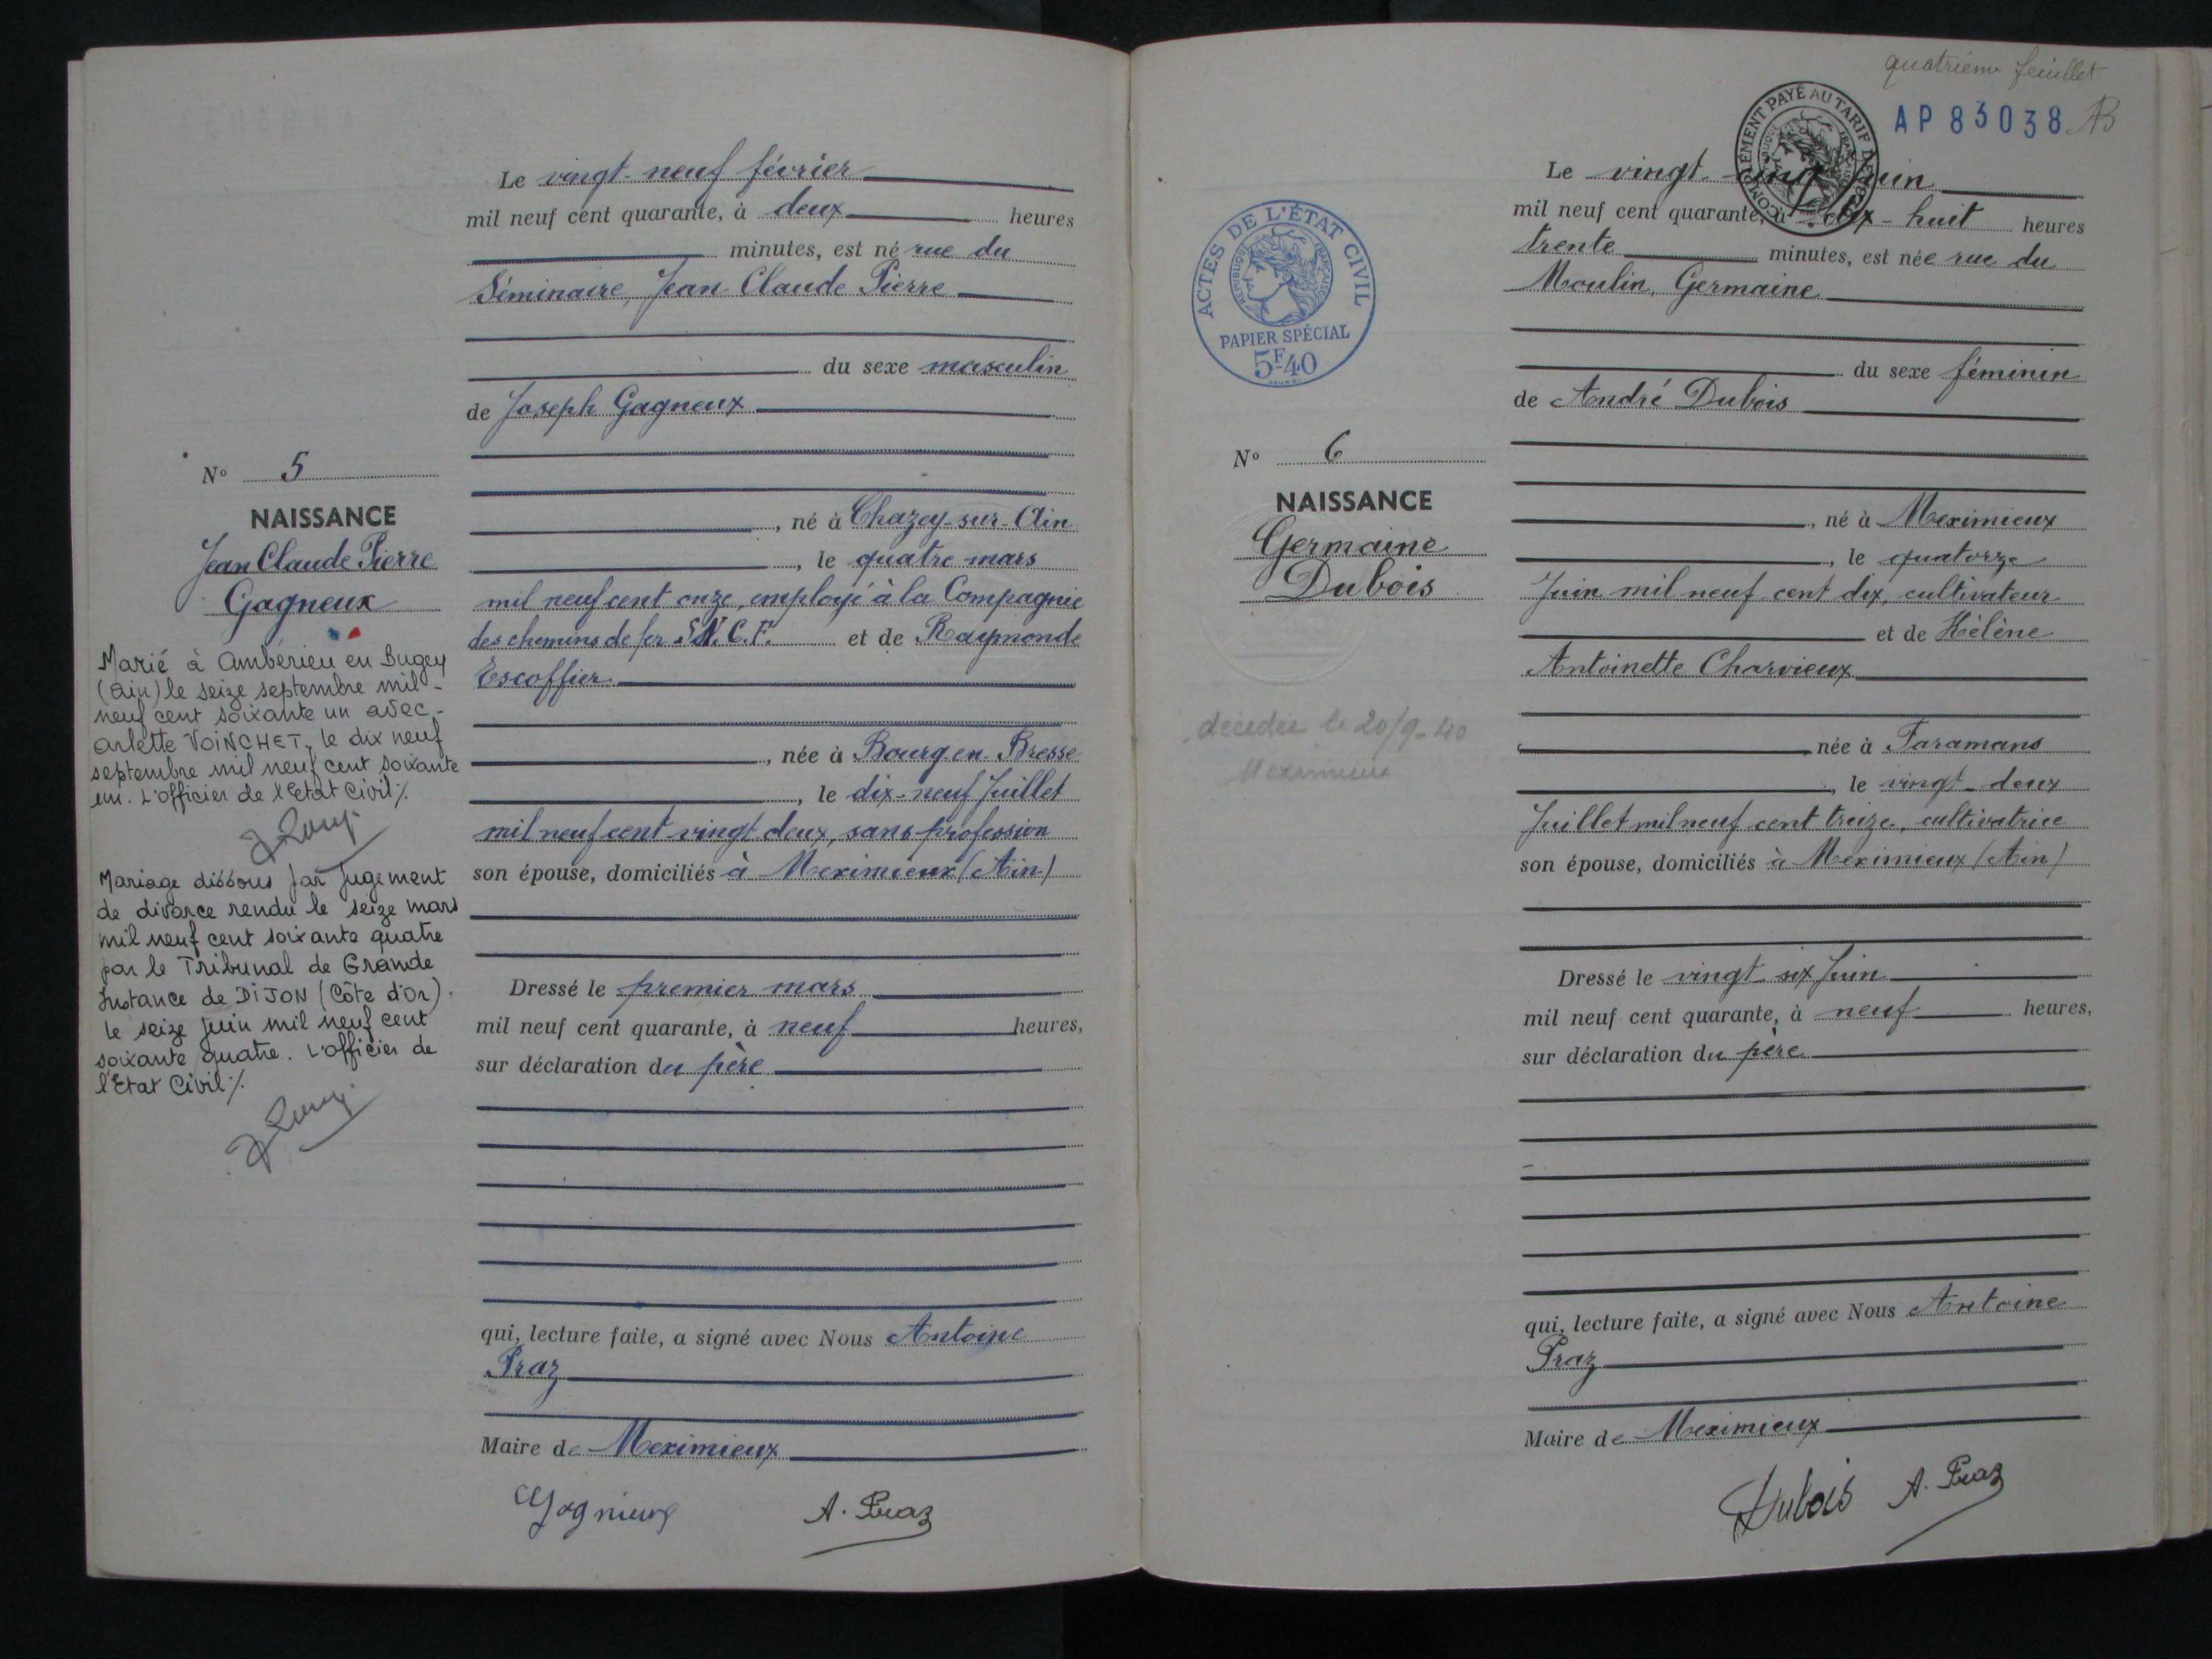 Le vingt-neuf février
mil neuf cent quarante, à deux heures
minutes, est né rue du
Séminaire, Jean Claude Pierre
du sexe masculin
de Joseph Gagneux
N° 5
NAISSANCE
Jean Claude Pierre
Gagneux
, né à Chazey-sur-Ain
, le quatre mars
mil neuf cent onze, employé à la Compagnie
des chemins de fer S.N.C.F. et de Raymonde
Escoffier
, née à Bourg en Bresse
, le dix-neuf Juillet
mil neuf cent vingt deux, sans profession
son épouse, domiciliés à Meximieux (Ain)
Marié à Ambérieu en Bugey
(Ain) le seize septembre mil-
neuf cent soixante un avec-
Arlette VOINCHET, le dix neuf
septembre mil neuf cent soixante
un. L'officier de l'Etat Civil ./.
Mariage dissous par Jugement
de divorce rendu le seize mars
mil neuf cent soixante quatre
par le Tribunal de Grande
Instance de DIJON (Côte d'Or).
le seize juin mil neuf cent
soixante quatre. L'officier de
l'Etat Civil ./.
Dressé le premier mars
mil neuf cent quarante, à neuf heures,
sur déclaration du père
qui, lecture faite, a signé avec Nous Antoine
Praz
Maire de Meximieux
Gagneux A. Praz
quatrième feuillet
AP 83038
COMPLÉMENT PAYÉ AU TARIF DE
Le vingt cinq Juin
mil neuf cent quarante, à dix-huit heures
trente minutes, est née rue du
Moulin, Germaine
du sexe féminin
de André Dubois
ACTES DE L'ÉTAT CIVIL
RÉPUBLIQUE FRANÇAISE
PAPIER SPÉCIAL
5F40
N° 6
NAISSANCE
Germaine
Dubois
décédée le 20/9-40
Meximieux
, né à Meximieux
, le quatorze
Juin mil neuf cent dix, cultivateur
et de Hélène
Antoinette Charvieux
née à Faramans
, le vingt-deux
Juillet mil neuf cent treize, cultivatrice
son épouse, domiciliés à Meximieux (Ain)
Dressé le vingt-six Juin
mil neuf cent quarante, à neuf heures,
sur déclaration du père
qui, lecture faite, a signé avec Nous Antoine
Praz
Maire de Meximieux
Dubois A. Praz